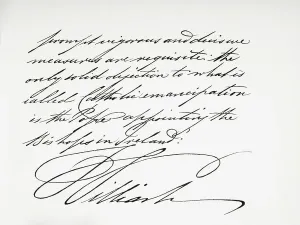 prompt vigorous and decisive
measures are requisite the
only solid objection to what is
called Catholic emancipation
is the Pope appointing the
Bishops in Ireland:
William